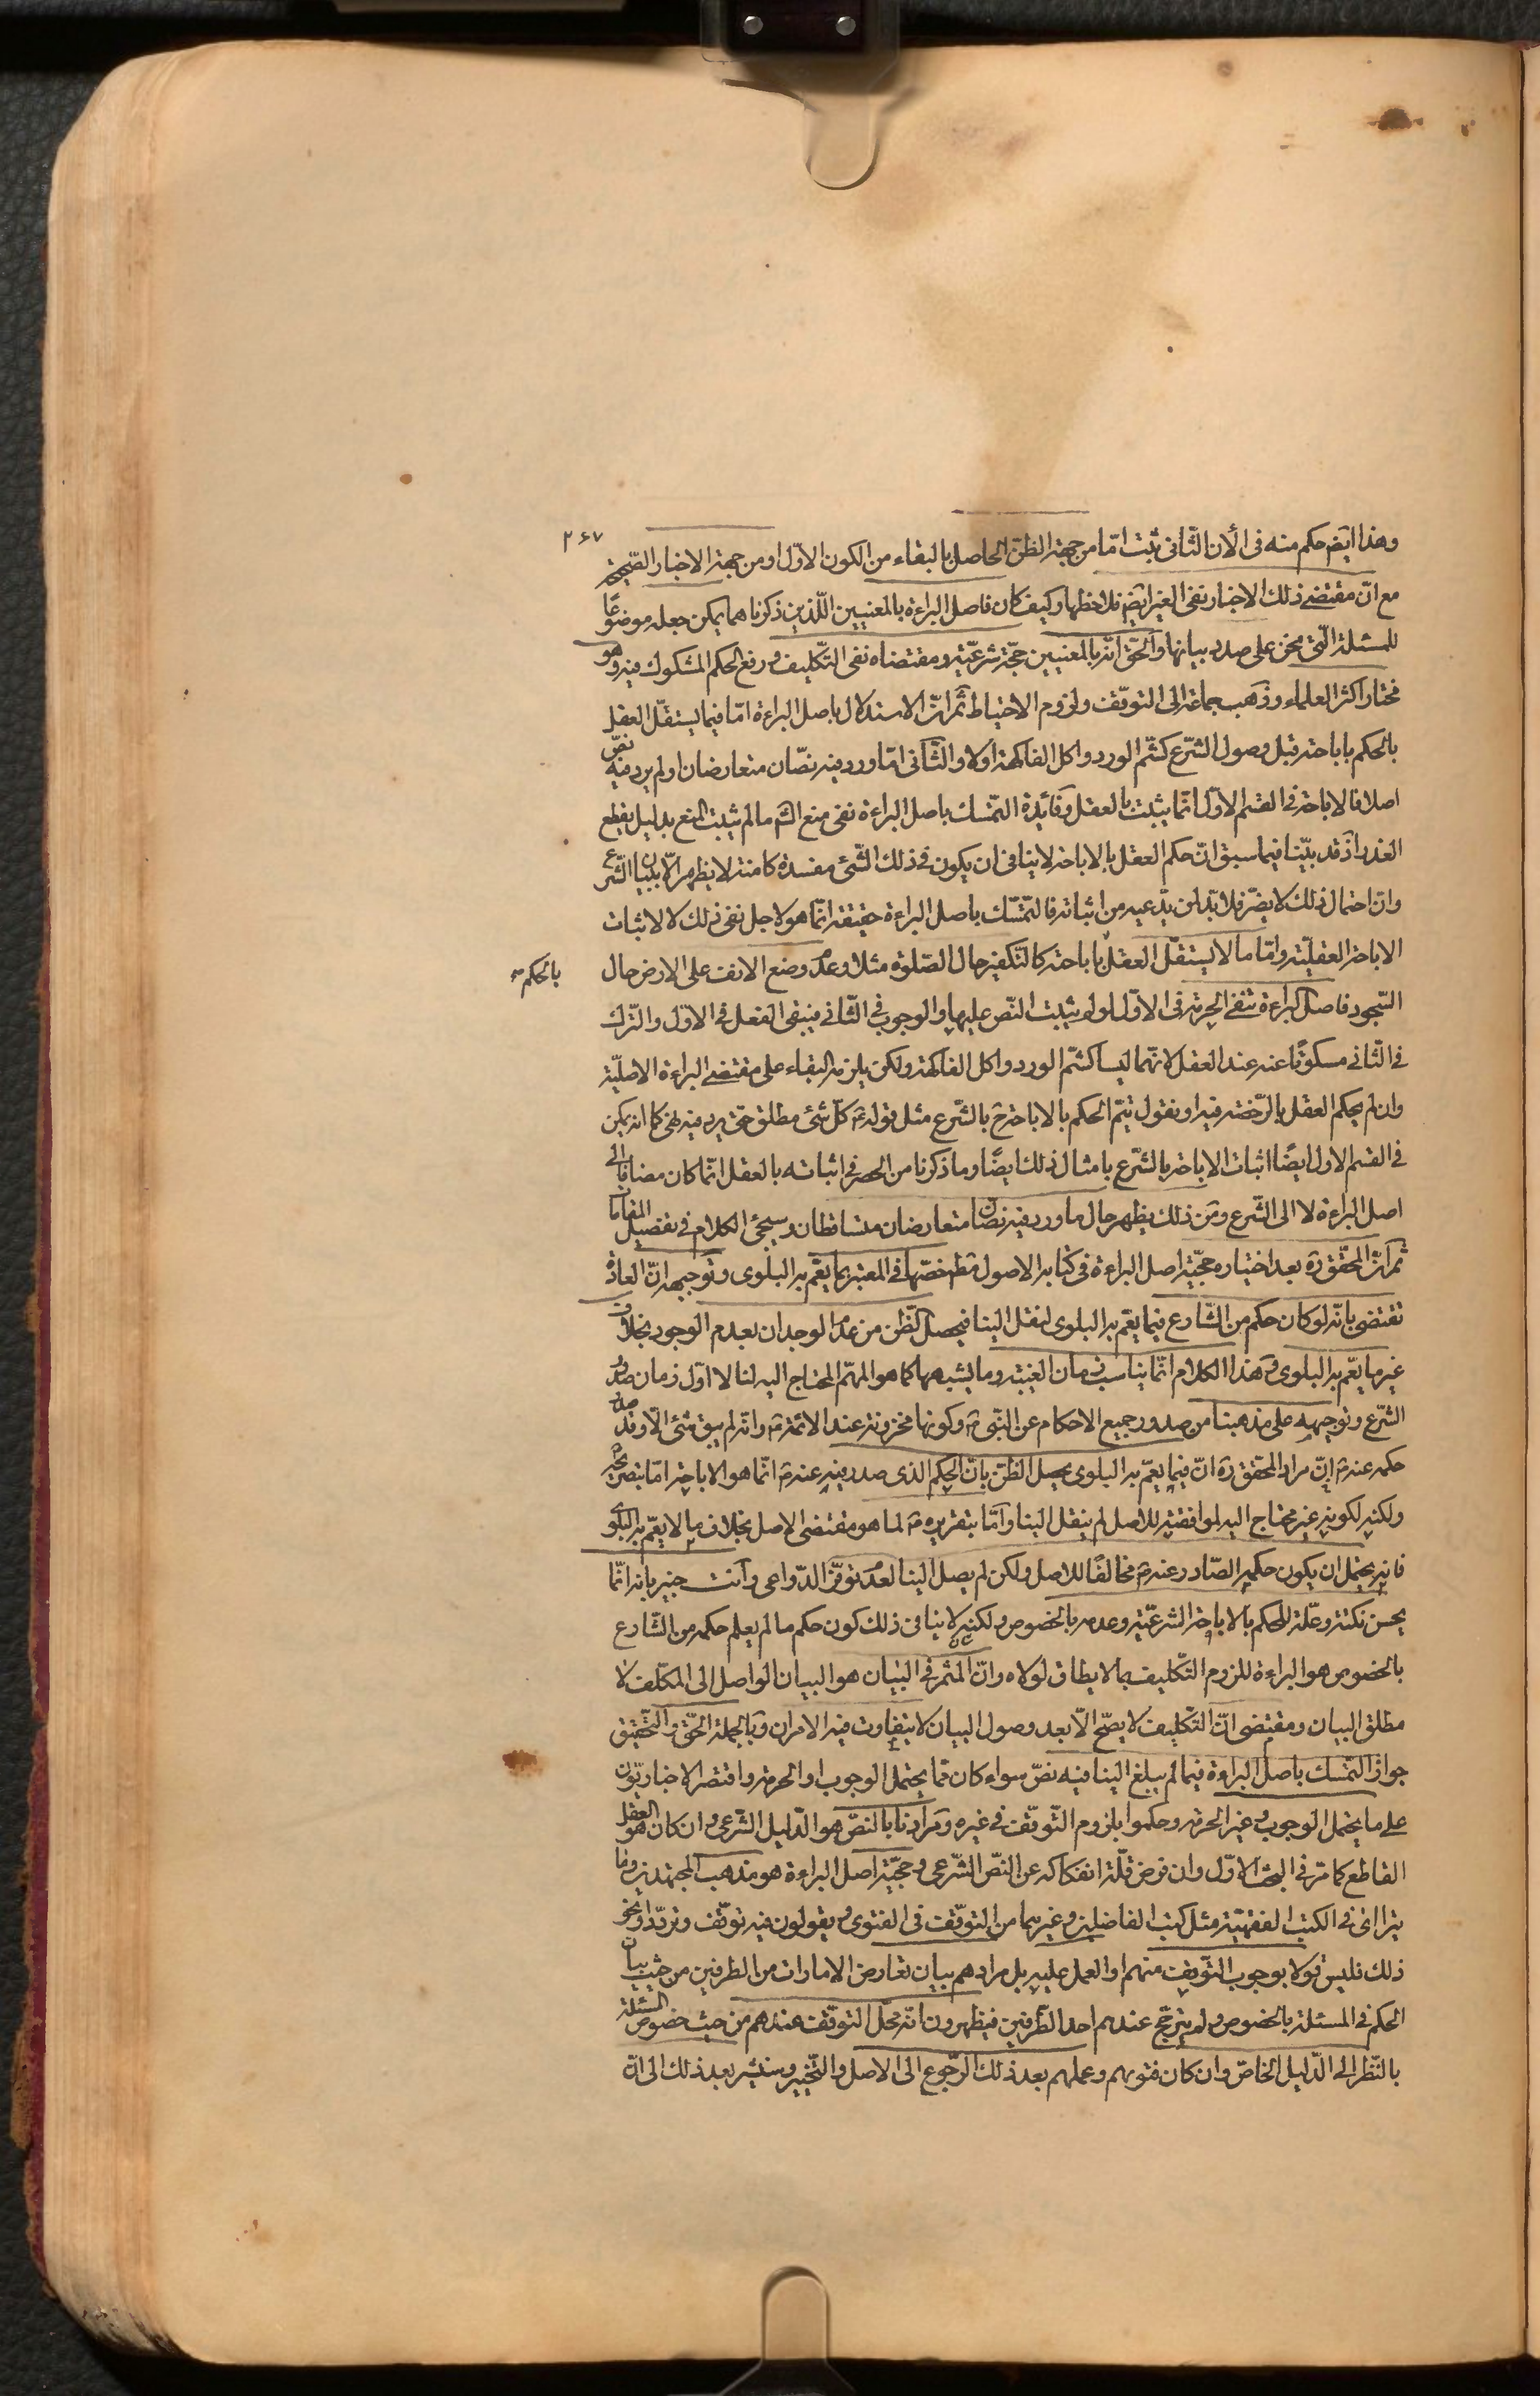 ۲۶۷
وهذا ايضا حكم منه فى الآن الثانى ثبت امّا من جهة الظنّ الحاصل بالبقاء من الكون الاوّل او من جهة الاخبار الصّحيحة
مع انّ مقتضى ذلك الاخبار نفى الغير ايضا فلاحظها وكيف كان فاصل البراءة بالمعنيين اللّذين ذكرناهما يمكن جعله موضوعًا
للمسئلة الّتى نحن على صدد بيانها والحقّ انّه بالمعنيين حجّة شرعيّة ومقتضاه نفى التّكليف ورفع الحكم المشكوك فيه وهو
مختار اكثر العلماء وذهب جماعة الى التوقّف ولزوم الاحتياط ثمّ انّ الاستدلال باصل البراءة امّا فيما يستقلّ العقل
بالحكم باباحته قبل وصول الشّرع كشمّ الورد واكل الفاكهة او لا والثّانى امّا ورد فيه نصّان متعارضان او لم يرد فيه نصّ
اصلا فالاباحة فى القسم الاوّل انّما يثبت بالعقل وفائدة التّمسّك باصل البراءة نفى منع الشّرع ما لم يثبت المنع بدليل يقطع
العذر اذ قد بيّنا فيما سبق انّ حكم العقل بالاباحة لا ينافى ان يكون فى ذلك الشّئ مفسدة كامنة لا يظهر الّا ببيان الشّرع
وانّ احتمال ذلك لا يضرّ فلا بدّ لمن يدّعيه من اثباته فالتّمسّك باصل البراءة حقيقة انّما هو لاجل نفى ذلك لا لاثبات
الاباحة العقليّة وامّا ما لا يستقلّ العقل باباحته كالتّكفير حال الصّلوة مثلا وعدم وضع الانف على الارض حال
بالحكم
السّجود فاصل البراءة تنفى الحرمة فى الاوّل لو لم يثبت النّص عليها والوجوب فى الثّانى فيبقى الفعل فى الاوّل والتّرك
فى الثّانى مسكوتًا عنه عند العقل لانّهما ليسا كشمّ الورد واكل الفاكهة ولكن يلزمه البقاء على مقتضى البراءة الاصليّة
وان لم يحكم العقل بالرّخصة فيه او نقول يتمّ الحكم بالاباحة ح بالشّرع مثل قوله ع كلّ شئ مطلق حتّى يرد فيه نهى كما انّه يمكن
فى القسم الاول ايضًا اثبات الاباحة بالشّرع بامثال ذلك ايضًا وما ذكرنا من الحصر فى اثباته بالعقل انّما كان مضافا الى
اصل البراءة لا الى الشّرع ومن ذلك يظهر حال ما ورد فيه نصّان متعارضان متساقطان وسيجئ الكلام فى تفصيل المقامات
ثمّ انّ المحقّق ره بعد اختياره حجّيّة اصل البراءة فى كتابه الاصول مطلقا خصّها فى المعتبر بما يعمّ به البلوى وتوجيهه انّ العادة
تقتضى بانّه لو كان حكم من الشّارع فيما يعمّ به البلوى لنقل الينا فيحصل الظّن من عدم الوجدان بعدم الوجود بخلاف
غير ما يعمّ به البلوى وهذا الكلام انّما يناسب زمان الغيبة وما يشبهها كما هو المهمّ المحتاج اليه لنا لا اوّل زمان صدور
الشّرع وتوجيهه على مذهبنا من صدور جميع الاحكام عن النّبى ص وكونها مخزونة عند الائمّة ع وانّه لم يبق شئ الّا وقد صدر
حكمه عنه ص انّ مراد المحقق ره انّ فيما يعمّ به البلوى يحصل الظّن بانّ الحكم الذى صدر فيه عنه ص انّما هو الاباحة امّا بتصريحه
ولكنه لكونه غير محتاج اليه لموافقته للاصل لم ينقل الينا وامّا بتقريره ص لما هو مقتضى الاصل بخلاف ما لا يعمّ به البلوى
فانه يحتمل ان يكون حكمه الصّادر عنه ص مخالفًا للاصل ولكن لم يصل الينا لعدم توفّر الدّواعى وانت خبير بانه انّما
يحسن نكتة وعلّة للحكم بالاباحة الشرعيّة وعدمه بالخصوص ولكنه لا ينافى ذلك كون حكم ما لم يعلم حكمه من الشّارع
بالخصوص هو البراءة للزوم التّكليف بما لا يطاق لولاه وانّ المثمر فى البيان هو البيان الواصل الى المكلّف لا
مطلق البيان ومقتضى انّ التّكليف لا يصّح الّا بعد وصول البيان لا يتفاوت فيه الامران وبالجملة الحّق والتّحقيق
جواز التّمسك باصل البراءة فيما لم يبلغ الينا فيه نصّ سواء كان ممّا يحتمل الوجوب او الحرمة واقتصر الاخباريّون
على ما يحتمل الوجوب وغير الحرمة وحكموا بلزوم التّوقّف فى غيره ومرادنا بالنصّ هو الدّليل الشّرعى وان كان هو العقل
القاطع كما مرّ فى البحث الاوّل وان فرض قلّة انفكاكه عن النصّ الشّرعى وحجّيّة اصل البراءة هو مذهب المجتهدين وما
يترا اى فى الكتب الفقهيّة مثل كتب الفاضلين وغيرهما من التوقّف فى الفتوى ويقولون فيه توقّف وتردّد او نحو
ذلك فليس قولا بوجوب التّوقف منهم او العمل عليه بل مرادهم بيان تعارض الامارات من الطرفين من حيث بيان
الحكم فى المسئلة بالخصوص ولم يترجّح عندهم احد الطّرفين فيظهرون انّه محلّ التوقّف عندهم من حيث خصوص المسئلة
بالنّظر الى الدّليل الخاصّ وان كان فتويهم وعملهم بعد ذلك الرّجوع الى الاصل والتّخيير وسنشير بعد ذلك الى انّ